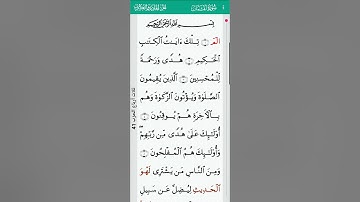 سُورَةُ لُقْمَان
بِسْمِ ٱللَّهِ ٱلرَّحْمَٰنِ ٱلرَّحِيمِ
الٓمٓ ۝ تِلْكَ ءَايَٰتُ ٱلْكِتَٰبِ
ٱلْحَكِيمِ ۝ هُدًى وَرَحْمَةً
لِّلْمُحْسِنِينَ ۝ ٱلَّذِينَ يُقِيمُونَ
ٱلصَّلَوٰةَ وَيُؤْتُونَ ٱلزَّكَوٰةَ وَهُم
بِٱلْأَخِرَةِ هُمْ يُوقِنُونَ ۝
أُو۟لَٰٓئِكَ عَلَىٰ هُدًى مِّن رَّبِّهِمْ ۖ
وَأُو۟لَٰٓئِكَ هُمُ ٱلْمُفْلِحُونَ ۝
وَمِنَ ٱلنَّاسِ مَن يَشْتَرِى لَهْوَ
ٱلْحَدِيثِ لِيُضِلَّ عَن سَبِيلِ
ثلاثة أرباع الحزب 41